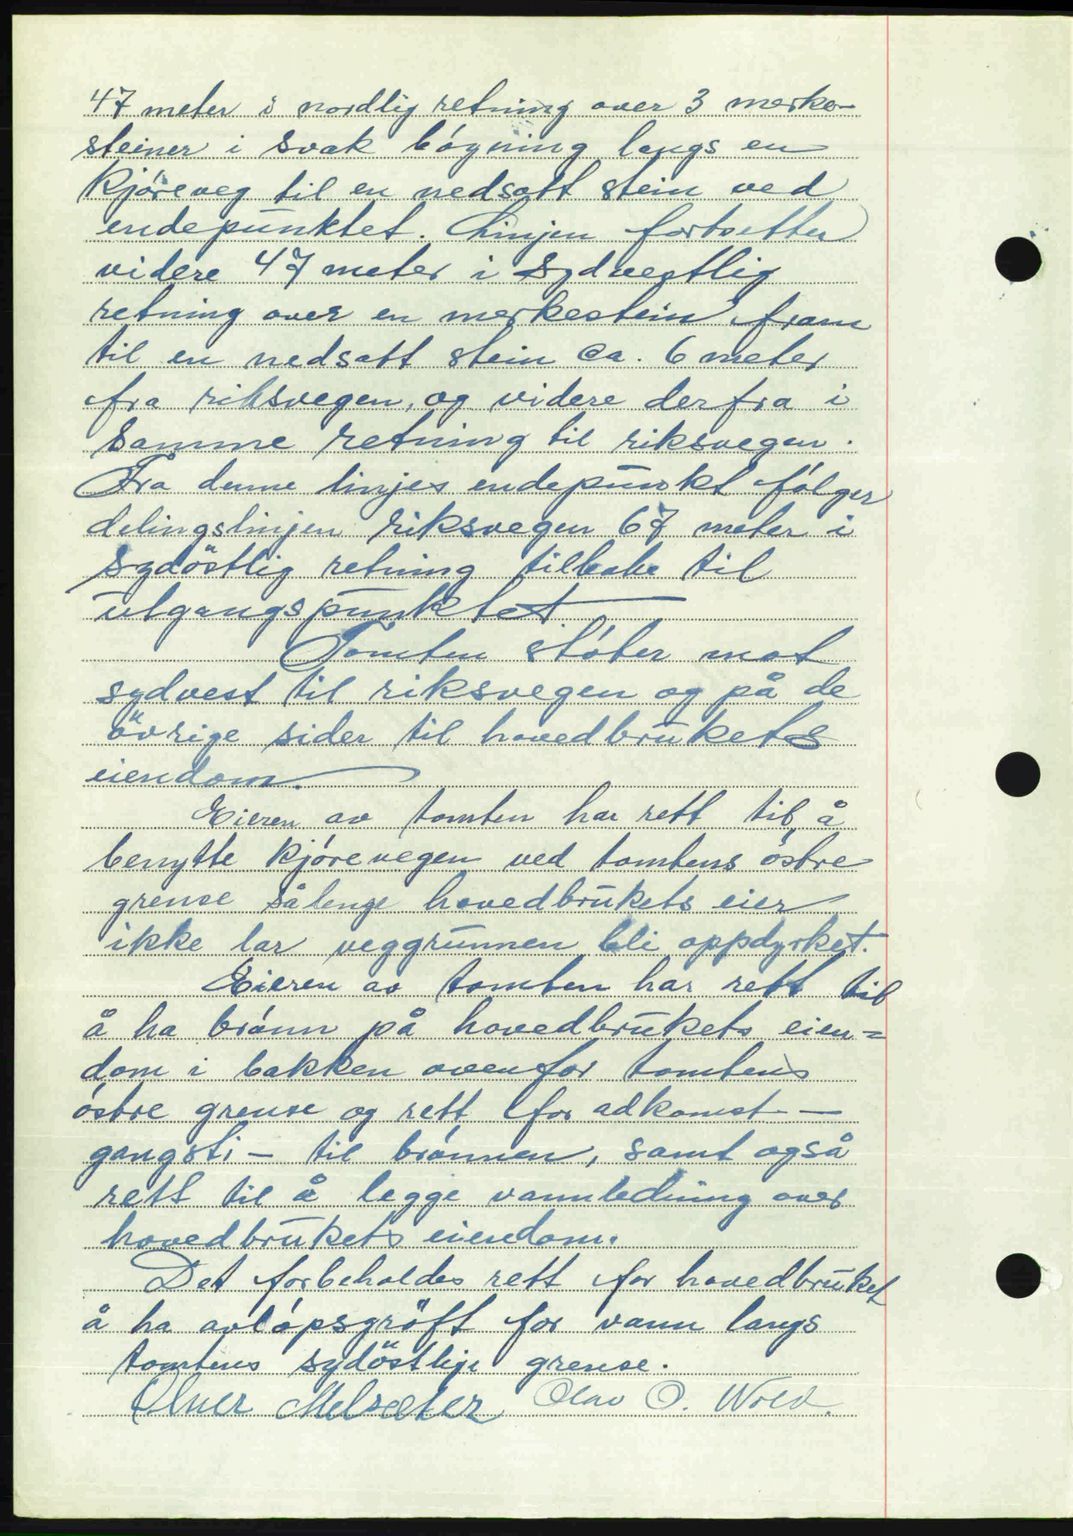 47 meter i nordlig retning over 3 merke-
steiner i svak bøyning langs en
kjøreveg til en nedsatt stein ved
endepunktet. Linjen fortsetter
videre 47 meter i sydvestlig
retning over en merkestein fram
til en nedsatt stein ca. 6 meter
fra riksvegen, og videre derfra i
samme retning til riksvegen.
Fra denne linjes endepunkt følger
delingslinjen riksvegen 67 meter i
sydöstlig retning tilbake til
utgangspunktet
Tomten støter mot
sydvest til riksvegen og på de
övrige sider til hovedbrukets
eiendom.
Eieren av tomten har rett til å
benytte kjørevegen ved tomtens østre
grense sålenge hovedbrukets eier
ikke lar veggrunnen bli oppdyrket.
Eieren av tomten har rett til
å ha brønn på hovedbrukets eien=
dom i bakken ovenfor tomtens
østre grense og rett for adkomst-
gangsti - til brønnen, samt også
rett til å legge vannledning over
hovedbrukets eiendom.
Det forbeholdes rett for hovedbruket
å ha avløpsgröft for vann langs
tomtens sydöstlige grense.
Melsæter Olav O. Wold.